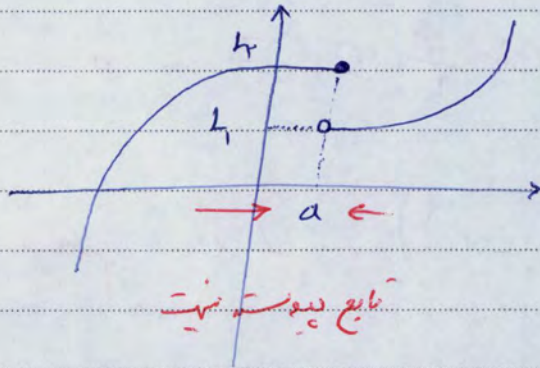 L۲
L₁
a
تابع پیوسته نیست